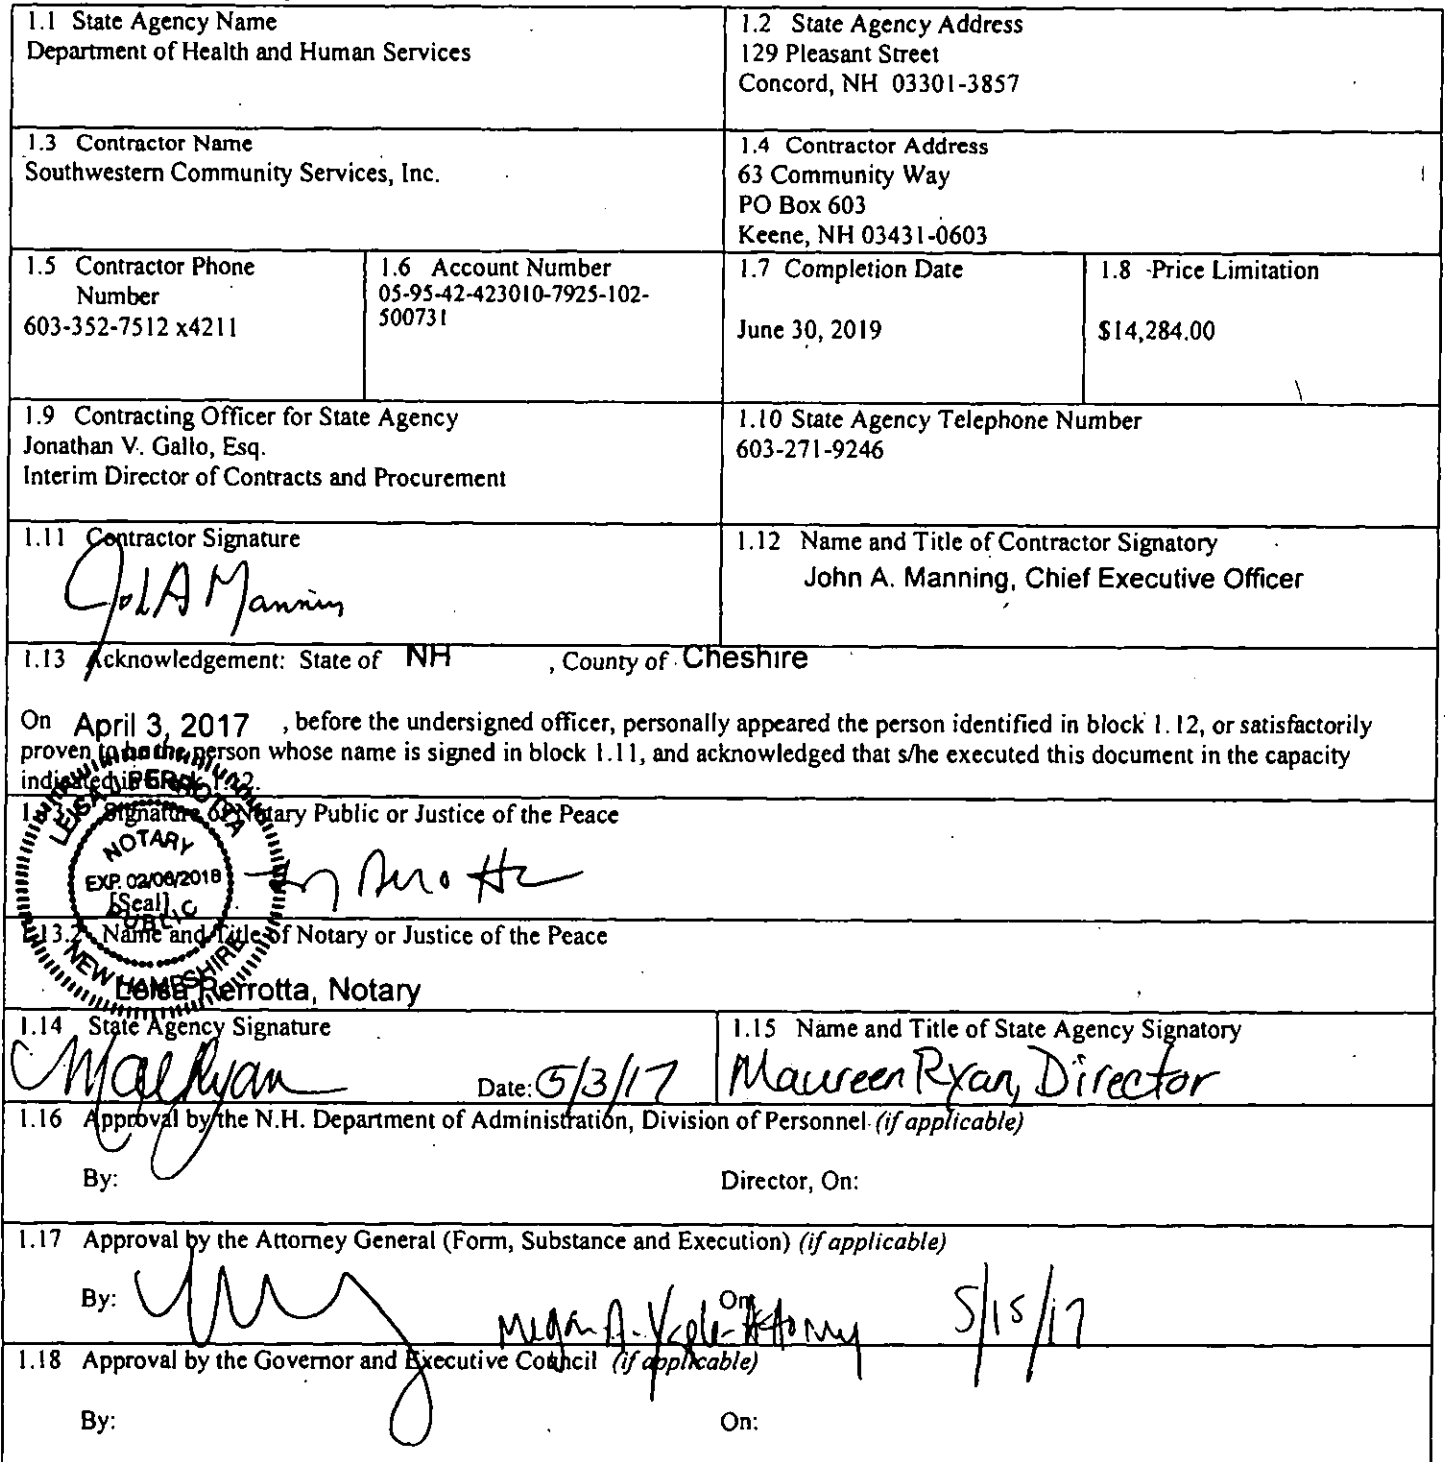 1.1 State Agency Name
Department of Health and Human Services
1.2 State Agency Address
129 Pleasant Street
Concord, NH 03301-3857
1.3 Contractor Name
Southwestern Community Services, Inc.
1.4 Contractor Address
63 Community Way
PO Box 603
Keene, NH 03431-0603
1.5 Contractor Phone
Number
603-352-7512 x4211
1.6 Account Number
05-95-42-423010-7925-102-
500731
1.7 Completion Date
June 30, 2019
1.8 Price Limitation
$14,284.00
1.9 Contracting Officer for State Agency
Jonathan V. Gallo, Esq.
Interim Director of Contracts and Procurement
1.10 State Agency Telephone Number
603-271-9246
1.11 Contractor Signature
Joh A Manning
1.12 Name and Title of Contractor Signatory
John A. Manning, Chief Executive Officer
1.13 Acknowledgement: State of NH , County of Cheshire
On April 3, 2017 , before the undersigned officer, personally appeared the person identified in block 1.12, or satisfactorily
proven to be the person whose name is signed in block 1.11, and acknowledged that s/he executed this document in the capacity
indicated in block 1.12.
1.13.1 Signature of Notary Public or Justice of the Peace
LEISA J PERROTTA
NOTARY
EXP. 02/06/2018
[Seal]
PUBLIC
NEW HAMPSHIRE
1.13.2 Name and Title of Notary or Justice of the Peace
Leisa Perrotta, Notary
1.14 State Agency Signature
Date: 5/3/17
1.15 Name and Title of State Agency Signatory
Maureen Ryan, Director
1.16 Approval by the N.H. Department of Administration, Division of Personnel (if applicable)
By: Director, On:
1.17 Approval by the Attorney General (Form, Substance and Execution) (if applicable)
By: Megan A. Yaple-Attorney On: 5/15/17
1.18 Approval by the Governor and Executive Council (if applicable)
By: On: